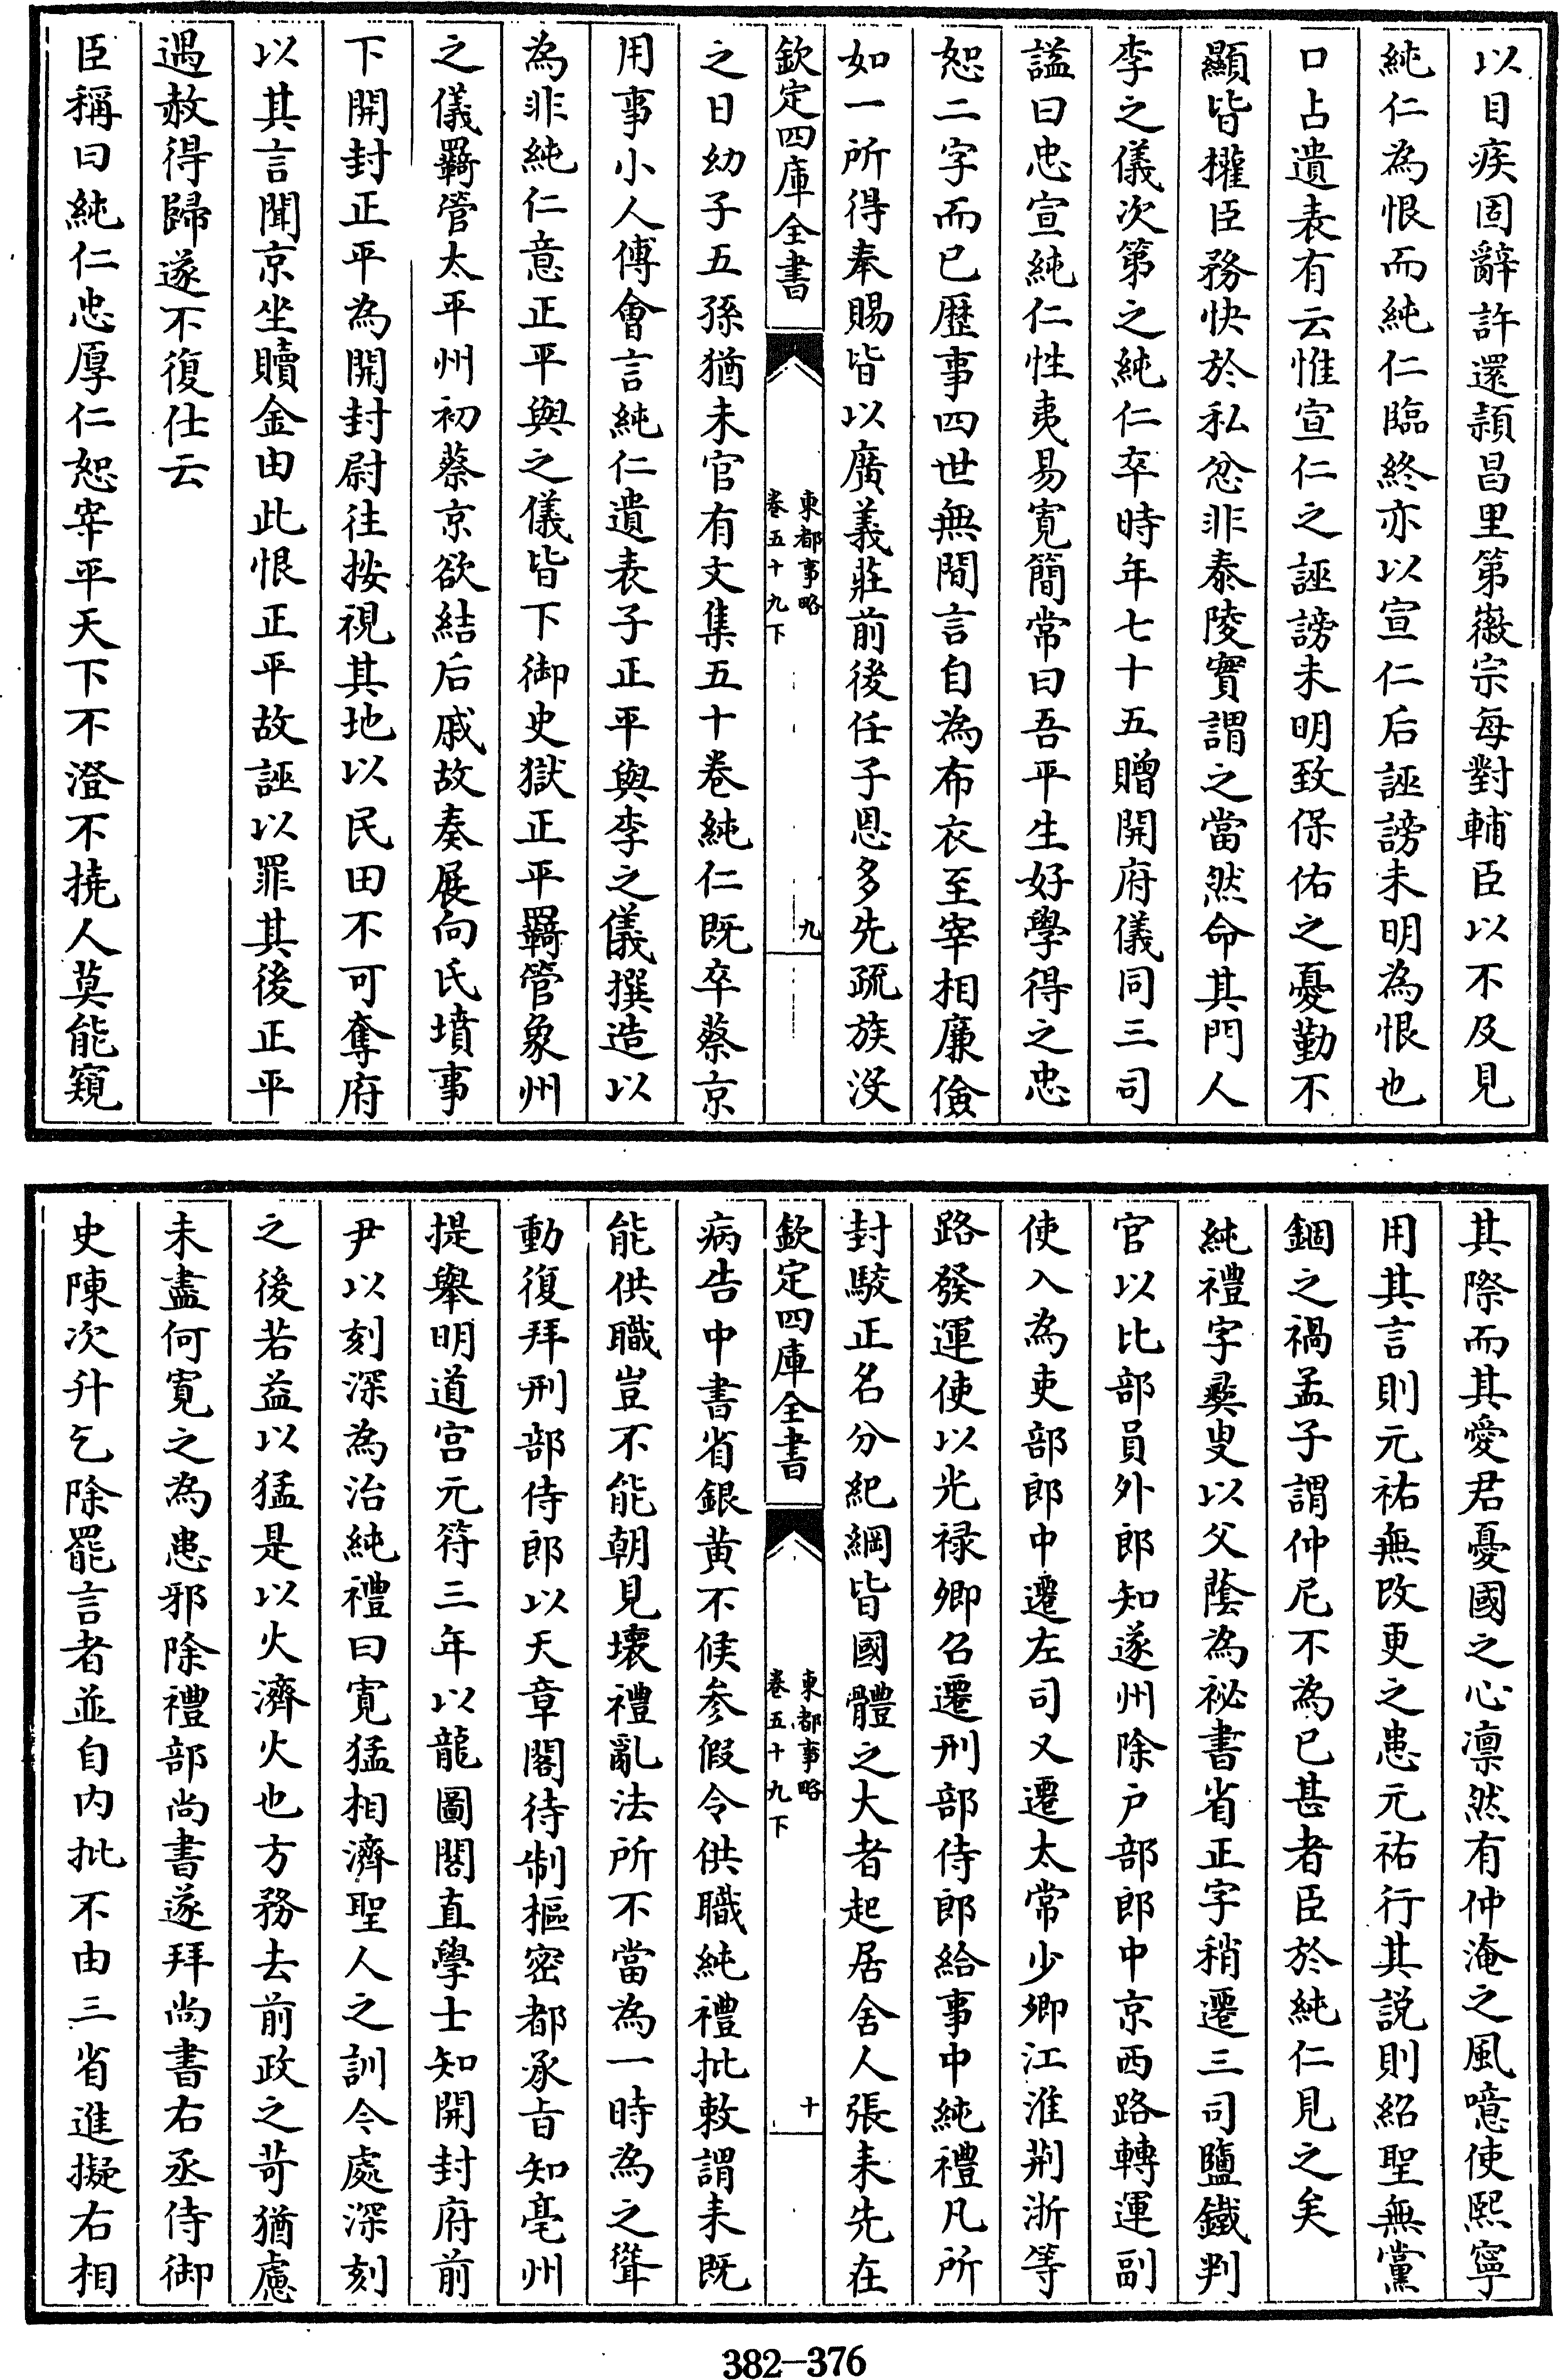 以目疾固辭許還潁昌里第徽宗每對輔臣以不及見
純仁為恨而純仁臨終亦以宣仁后誣謗未明為恨也
口占遺表有云惟宣仁之誣謗未明致保佑之憂勤不
顯皆權臣務快於私忿非泰陵實謂之當然命其門人
李之儀次第之純仁卒時年七十五贈開府儀同三司
諡曰忠宣純仁性夷易寛簡常曰吾平生好學得之忠
恕二字而已歴事四世無間言自為布衣至宰相廉儉
如一所得奉賜皆以廣義莊前後任子恩多先疏族沒
欽定四庫全書
東都事略
卷五十九下
九
之日幼子五孫猶未官有文集五十卷純仁既卒蔡京
用事小人傅會言純仁遺表子正平與李之儀撰造以
為非純仁意正平與之儀皆下御史獄正平羈管象州
之儀羈管太平州初蔡京欲結后戚故奏展向氏墳事
下開封正平為開封尉往按視其地以民田不可奪府
以其言聞京坐贖金由此恨正平故誣以罪其後正平
遇赦得歸遂不復仕云
臣稱曰純仁忠厚仁恕宰平天下不澄不撓人莫能窺
其際而其愛君憂國之心凛然有仲淹之風噫使熙寧
用其言則元祐無改更之患元祐行其説則紹聖無黨
錮之禍孟子謂仲尼不為已甚者臣於純仁見之矣
純禮字彛叟以父蔭為祕書省正字稍遷三司鹽鐵判
官以比部員外郎知遂州除户部郎中京西路轉運副
使入為吏部郎中遷左司又遷太常少卿江淮荆浙等
路發運使以光禄卿召遷刑部侍郎給事中純禮凡所
封駮正名分紀綱皆國體之大者起居舍人張耒先在
欽定四庫全書
東都事略
卷五十九下
十
病告中書省銀黄不候参假令供職純禮批敕謂耒既
能供職豈不能朝見壞禮亂法所不當為一時為之聳
動復拜刑部侍郎以天章閣待制樞密都承旨知亳州
提舉明道宫元符三年以龍圖閣直學士知開封府前
尹以刻深為治純禮曰寛猛相濟聖人之訓今處深刻
之後若益以猛是以火濟火也方務去前政之苛猶慮
未盡何寛之為患邪除禮部尚書遂拜尚書右丞侍御
史陳次升乞除罷言者並自内批不由三省進擬右相
382-376